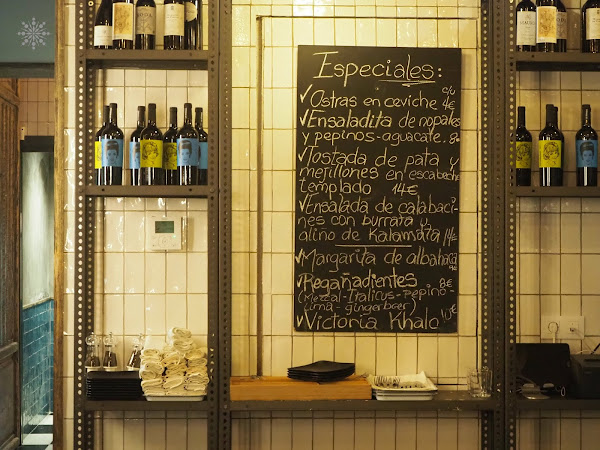 Especiales:
✓Ostras en ceviche c/u 4€
✓Ensaladita de nopales
y pepinos-aguacate. 8.
✓Tostada de pata y
mejillones en escabeche
templado 14€
✓Ensalada de calabaci-
nes con burrata y
aliño de Kalamata 14€
✓Margarita de albahaca
✓Regañadientes 8€
(Mezcal-Italicus-pepino-
lima-gingerbeer)
✓Victoria Khalo 10€